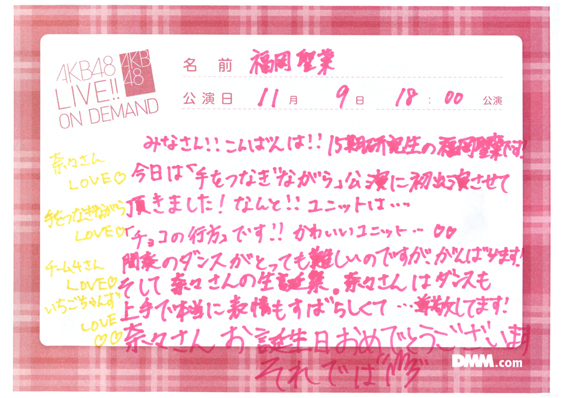 AKB48
LIVE!!
ON DEMAND
AKB
48
名前 福岡聖菜
公演日 11月 9日 18:00 公演
みなさん!!こんばんは!!15期研究生の福岡聖菜です!
今日は「手をつなぎながら」公演に初出演させて
頂きました!なんと!!ユニットは…
「チョコの行方」です!!かわいいユニット…♡♡
関表のダンスがとっても難しいのですが、がんばります!
そして奈々さんの生誕祭。奈々さんはダンスも
上手で本当に表情もすばらしくて…尊敬してます!
奈々さんお誕生日おめでとうございます
それでは
奈々さん
LOVE♡
手をつなぎながら
LOVE♡
チーム4さん
LOVE♡
いちごちゃんず
LOVE
♡♡
DMM.com